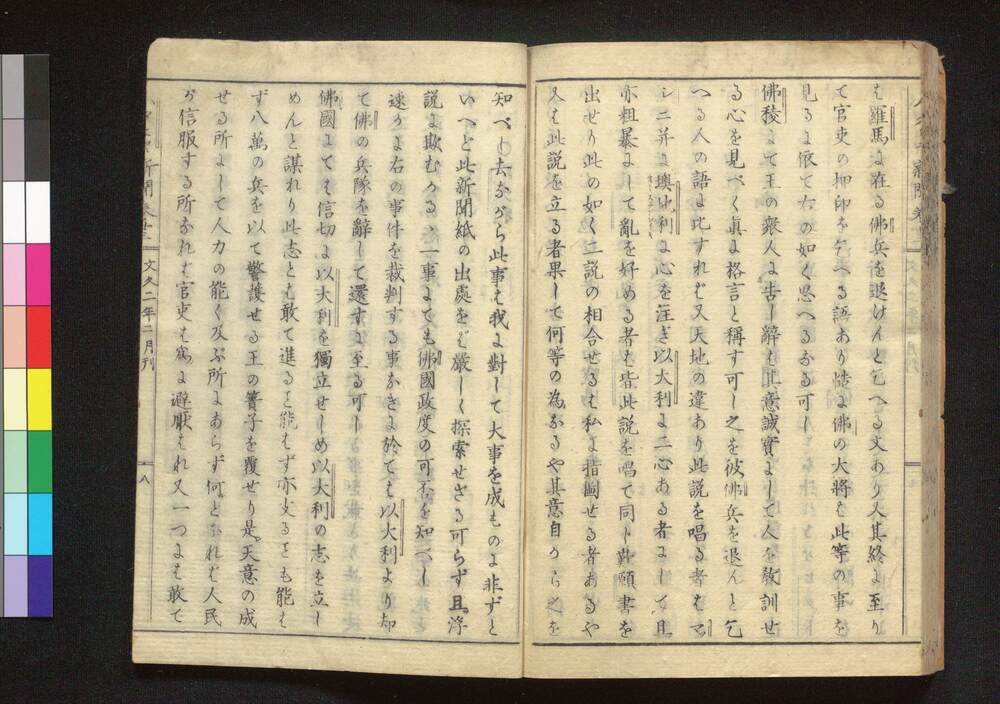 も羅馬に在る佛兵を退けんと乞へる文あり又其終に至り
て官吏の押印を乞へる語あり惜は佛の大將も此等の事を
見るに依て右の如く思へるなる可し
佛稜にて王の衆人に告し辭も其意誠實にして人を教訓せ
る心を見べく眞に格言と稱す可し之を彼佛兵を退んと乞
へる人の語に比すれば又天地の違あり此説を唱る者はマ
シニ并に墺地利に心を注ぎ以大利に二心ある者にして且
亦粗暴にして亂を好める者も皆此説を唱て同し歎願書を
出せり此の如く二説の相合せるは私に指圖せる者あるや
又は此説を立る者果して何等の為なるや其意自から之を
知べし去ながら此事も我に對して大事を成ものに非ずと
いへど此新聞紙の出處をば嚴しく探索せざる可らず且浮
説に欺むかるゝ一事にても佛國政度の可否を知べし
速かに右の事件を裁判する事なきに於ても以大利より却
て佛の兵隊を辭して還すに至る可し
佛國にても信切に以大利を獨立せしめ以大利の志を立し
めんと謀れり此志とも敢て進ると能はず亦支ると も能は
ず八萬の兵を以て警護せる王の寶子を覆せり是天意の成
せる所にして人力の能く及ぶ所にあらず何となれば人民
が信服する所なれば官吏も為に避厭はれ又一つには敢て
文久二年二月刊
八